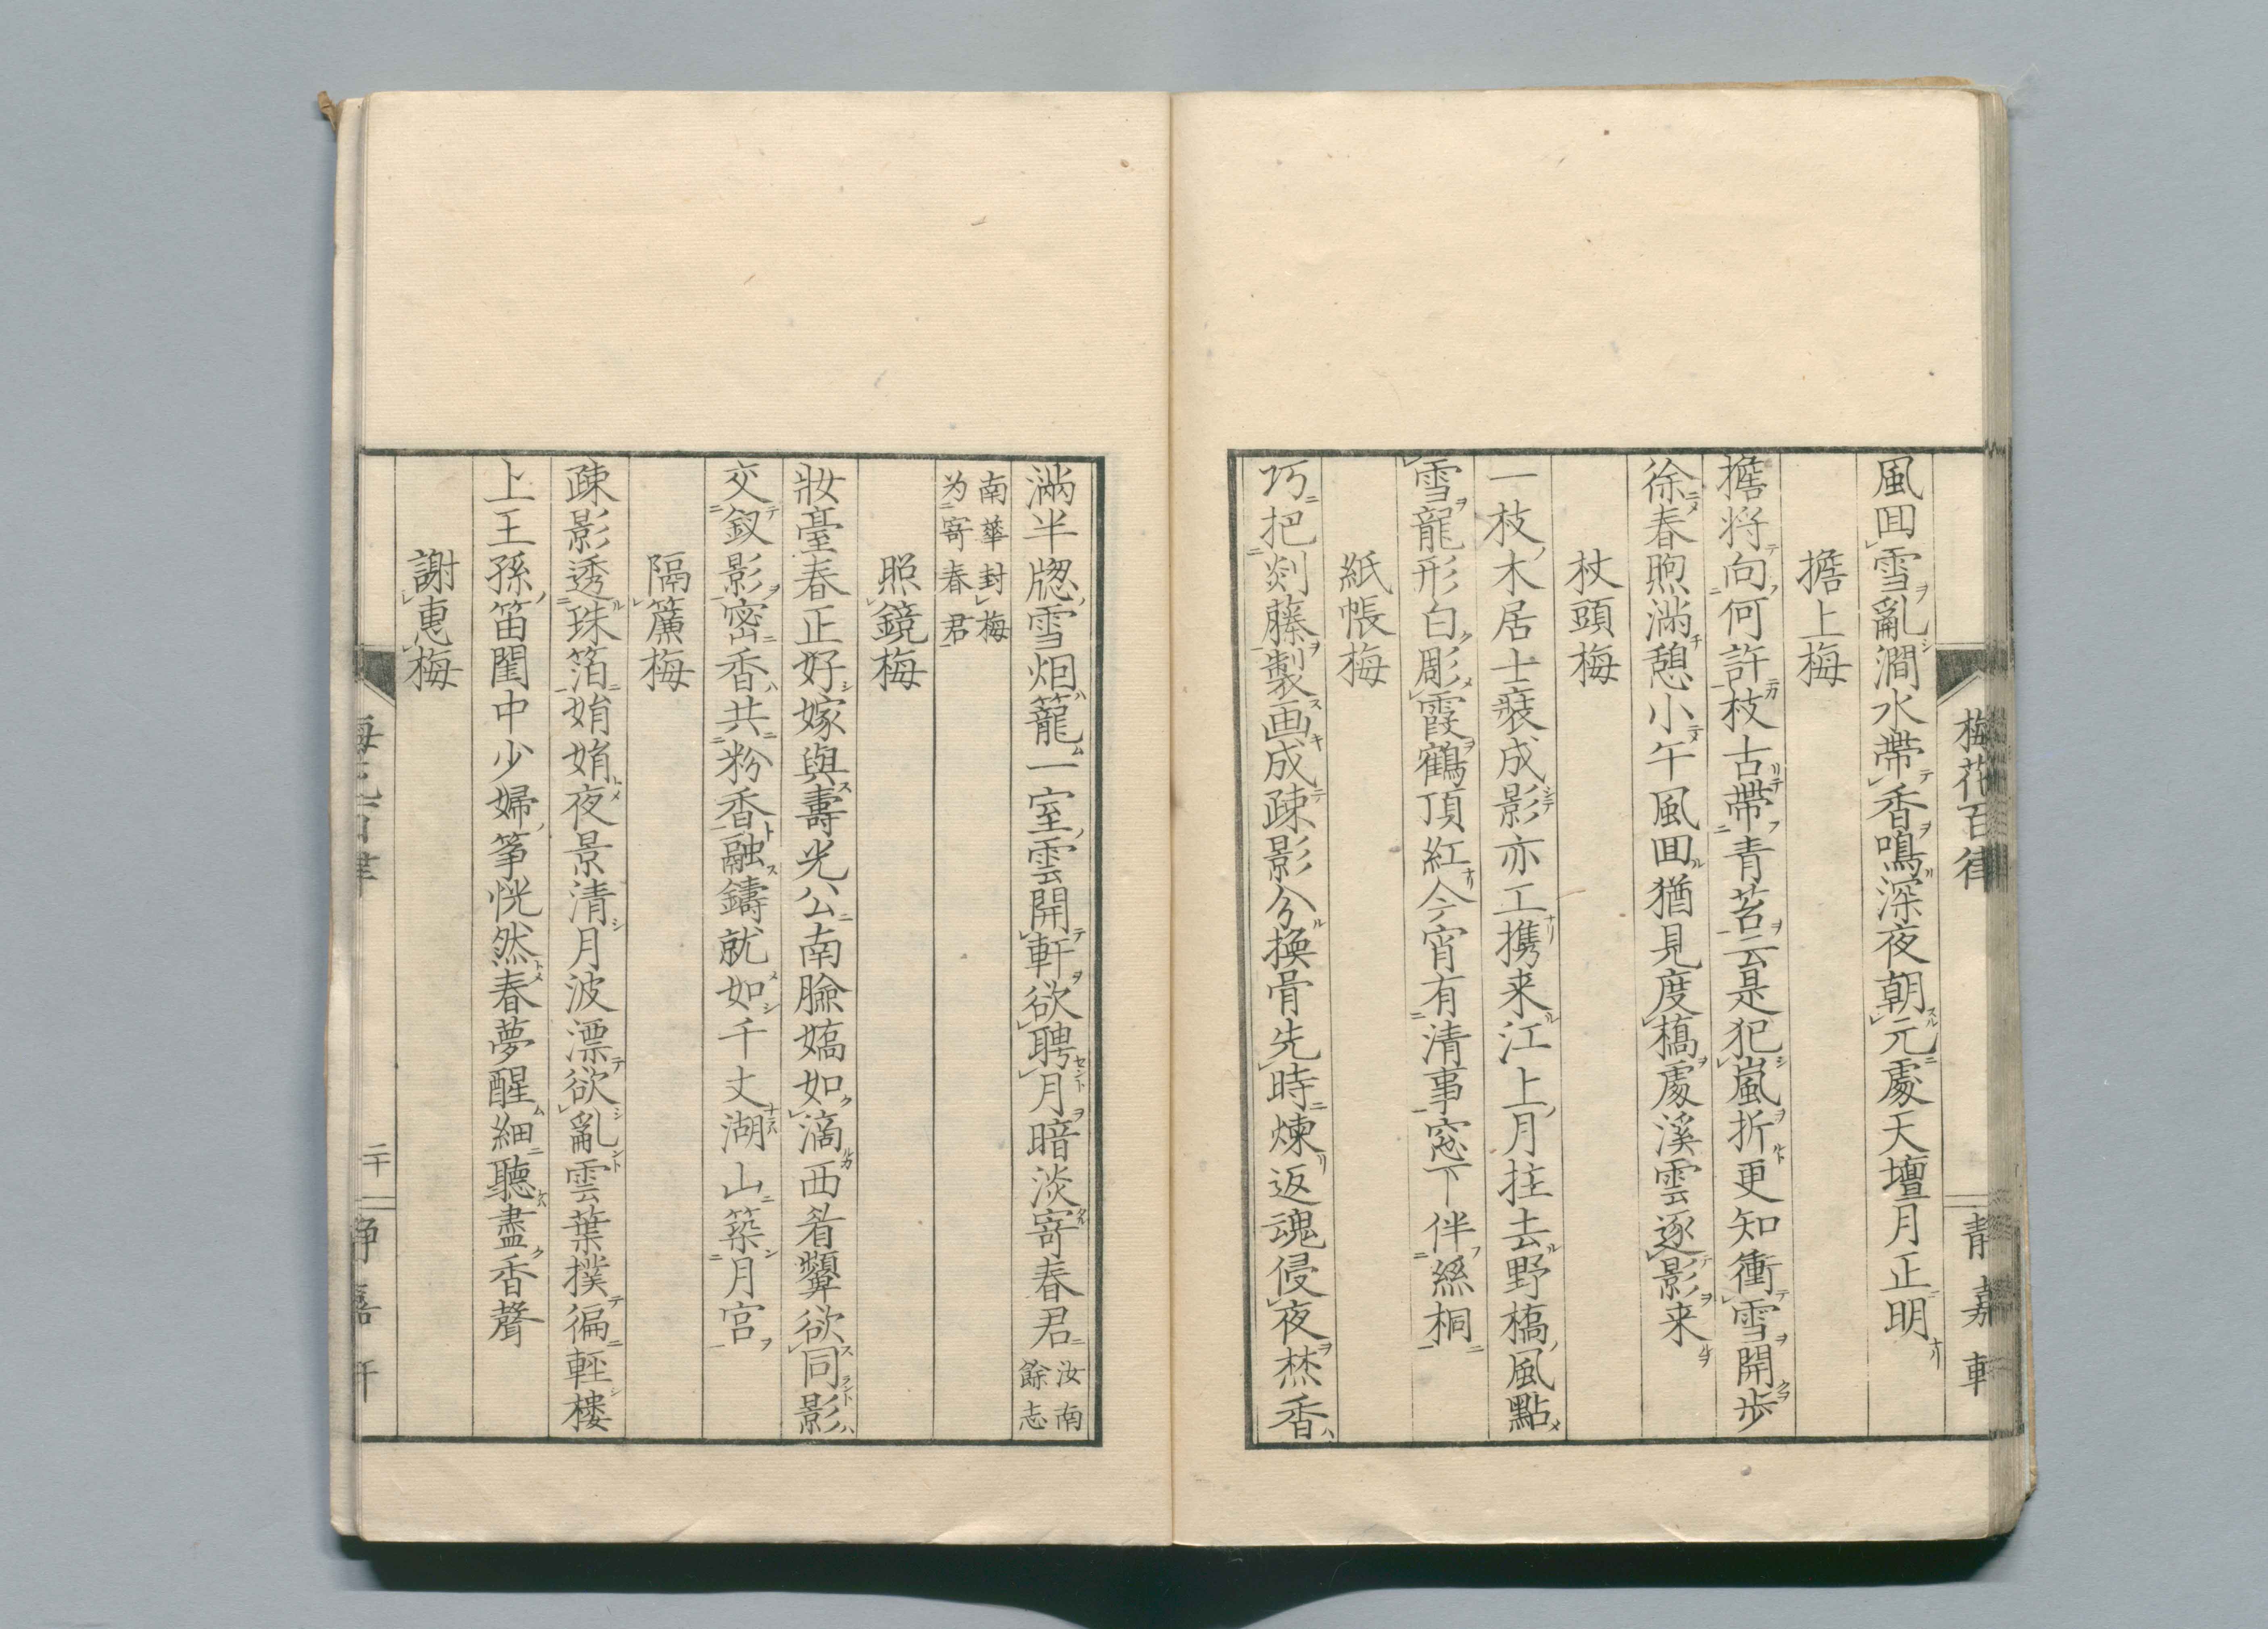 梅花百律
靜嘉軒
風回雪亂澗水帶香鳴深夜朝元處天壇月正明
擔上梅
擔将向何許枝古帶青苔云是犯嵐折更知衝雪開歩
徐春煦滿憩小午風回猶見度橋處溪雲逐影来
杖頭梅
一枝木居士裁成影亦工携来江上月拄去野橋風點
雪龍形白彫霞鶴頂紅今宵有清事窓下伴絲桐
紙帳梅
巧把剡藤製画成疎影分換骨先時煉返魂侵夜焚香
滿半牕雪烟籠一室雲開軒欲聘月暗淡寄春君 汝南餘志
南華封梅
为寄春君
照鏡梅
妝臺春正好嫁與壽光公南臉嬌如滴西眉顰欲同影
交釵影密香共粉香融鑄就如千丈湖山築月宮
隔簾梅
疎影透珠箔娟娟夜景清月波漂欲亂雲葉撲徧輕樓
上王孫笛閨中少婦筝恍然春夢醒細聽盡香聲
謝惠梅
二十